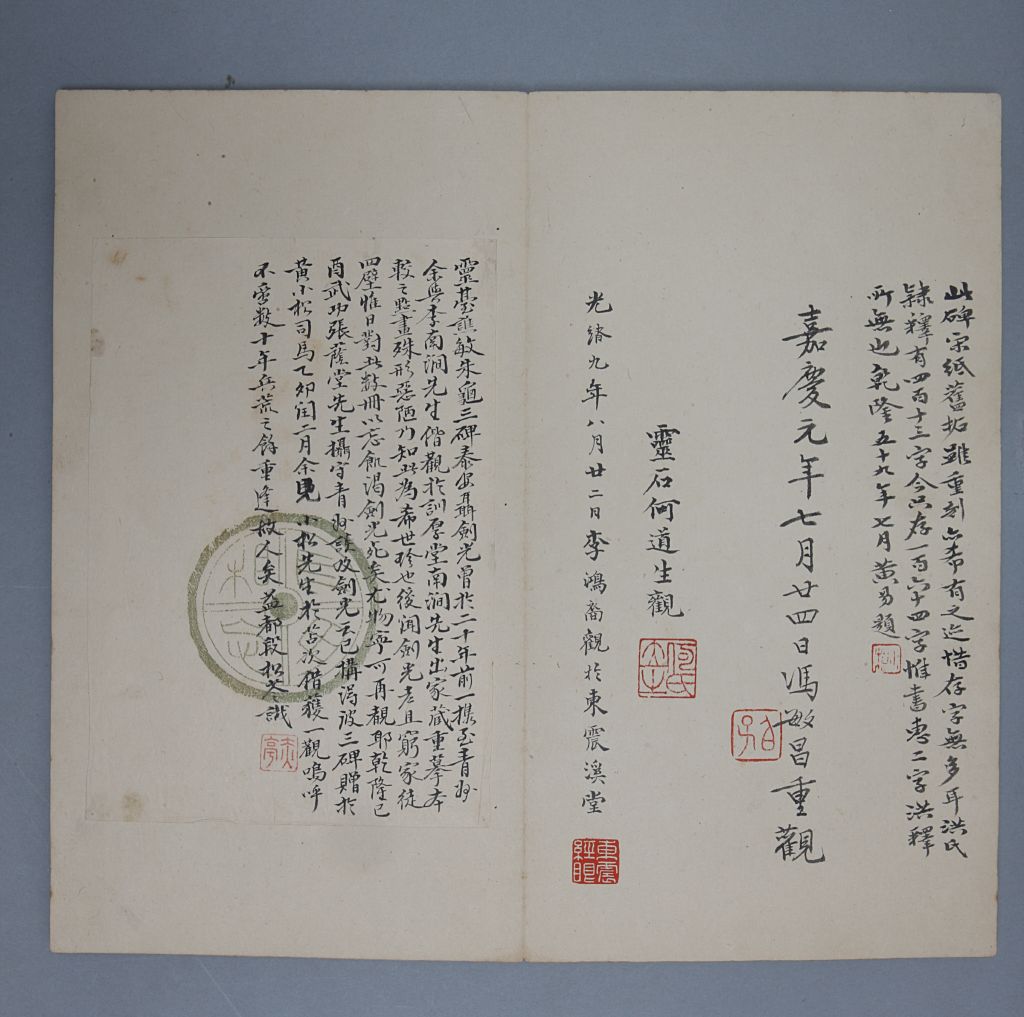 此碑宋紙舊拓雖重刻亦希有之迹惜存字無多耳洪氏
隸釋有四百十三字今只存一百六十四字惟書惠二字洪釋
所無也乾隆五十九年七月黃易題
嘉慶元年七月廿四日馮敏昌重觀
靈石何道生觀
何氏
光緒九年八月廿二日李鴻裔觀於東震溪堂
靈臺譙敏朱龜三碑泰安聶劍光曾於二十年前一攜至青州
余與李南澗先生偕觀於訓厚堂南澗先生出家藏重摹本
較之點畫殊形惡陋乃知此為希世珍也後聞劍光老且窮家徒
四壁惟日對此數冊以忘飢渴劍光死矣尤物寧可再覩耶乾隆己
酉武功張蔭堂先生攝守青州語故劍光云已購得彼三碑贈於
黃小松司馬乙卯閏二月余見小松先生於苫次借獲一觀嗚呼
不啻數十年兵荒之餘重逢故人矣益都段松苓識